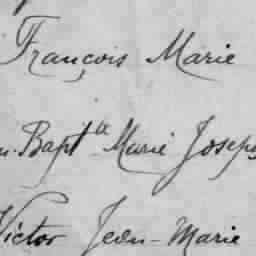 François Marie
n. Bapt^te Marie Joseph
Victor Jean-Marie